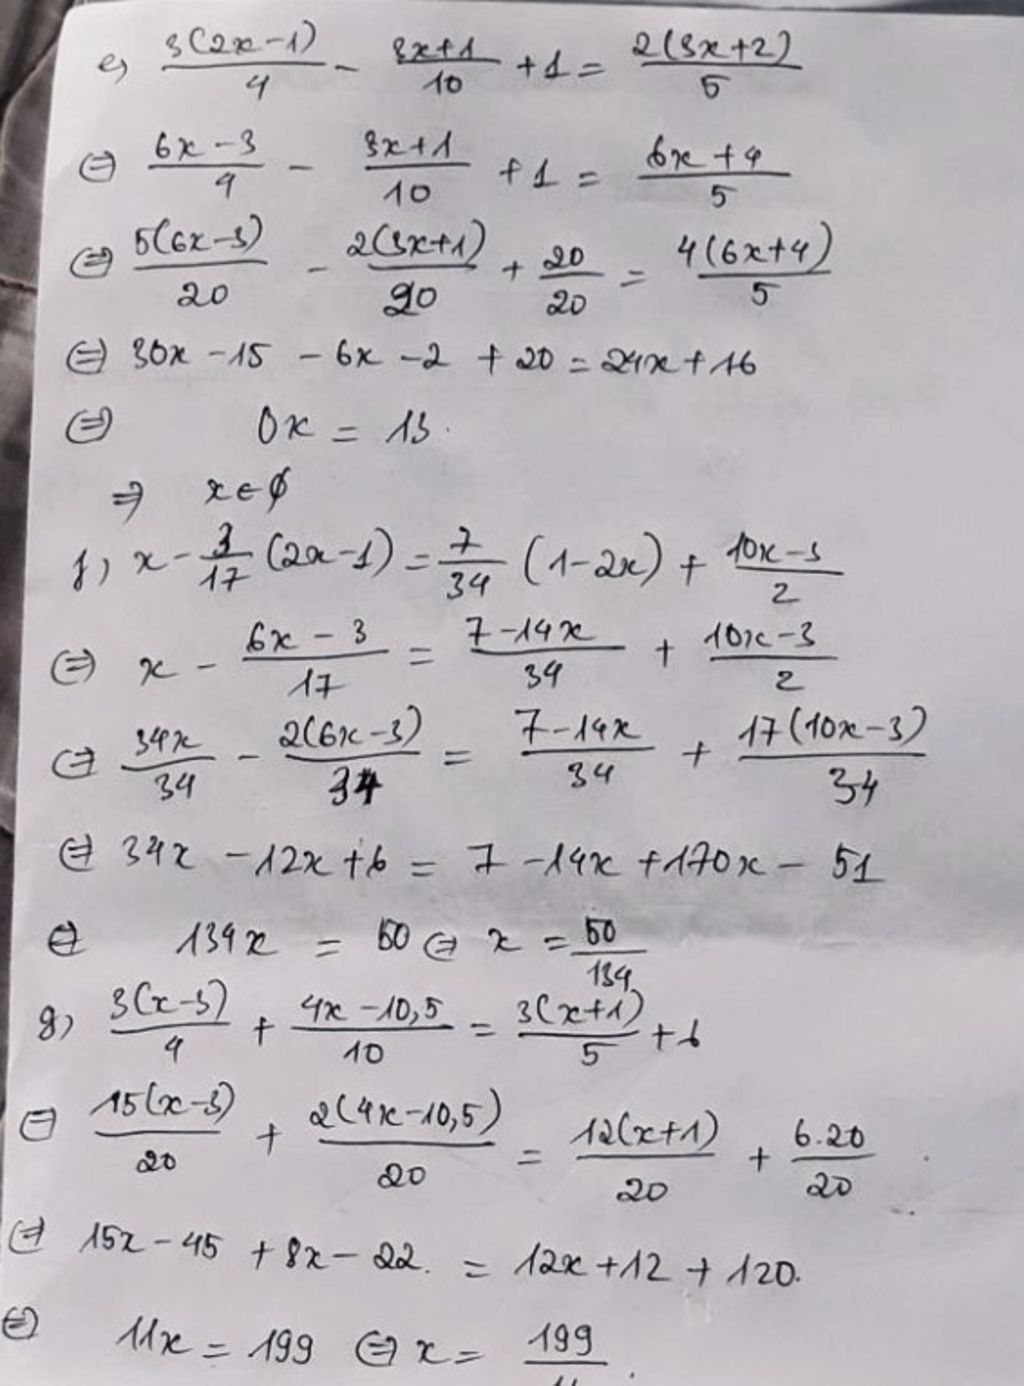 e, 3(2x-1)/4 - 3x+1/10 +1 = 2(3x+2)/5
⇔ 6x-3/4 - 3x+1/10 +1 = 6x+4/5
⇔ 5(6x-3)/20 - 2(3x+1)/20 + 20/20 = 4(6x+4)/5
⇔ 30x -15 - 6x -2 + 20 = 24x + 16
⇔ 0x = 13.
⇒ x ∈ ∅
f, x - 3/17 (2x-1) = 7/34 (1-2x) + 10x-3/2
⇔ x - 6x-3/17 = 7-14x/34 + 10x-3/2
⇔ 34x/34 - 2(6x-3)/34 = 7-14x/34 + 17(10x-3)/34
⇔ 34x -12x +6 = 7 -14x +170x - 51
⇔ 134x = 50 ⇔ x = 50/134
g, 3(x-3)/4 + 4x-10,5/10 = 3(x+1)/5 + 6
⇔ 15(x-3)/20 + 2(4x-10,5)/20 = 12(x+1)/20 + 6.20/20
⇔ 15x - 45 + 8x - 22. = 12x + 12 + 120.
⇔ 11x = 199 ⇔ x = 199/